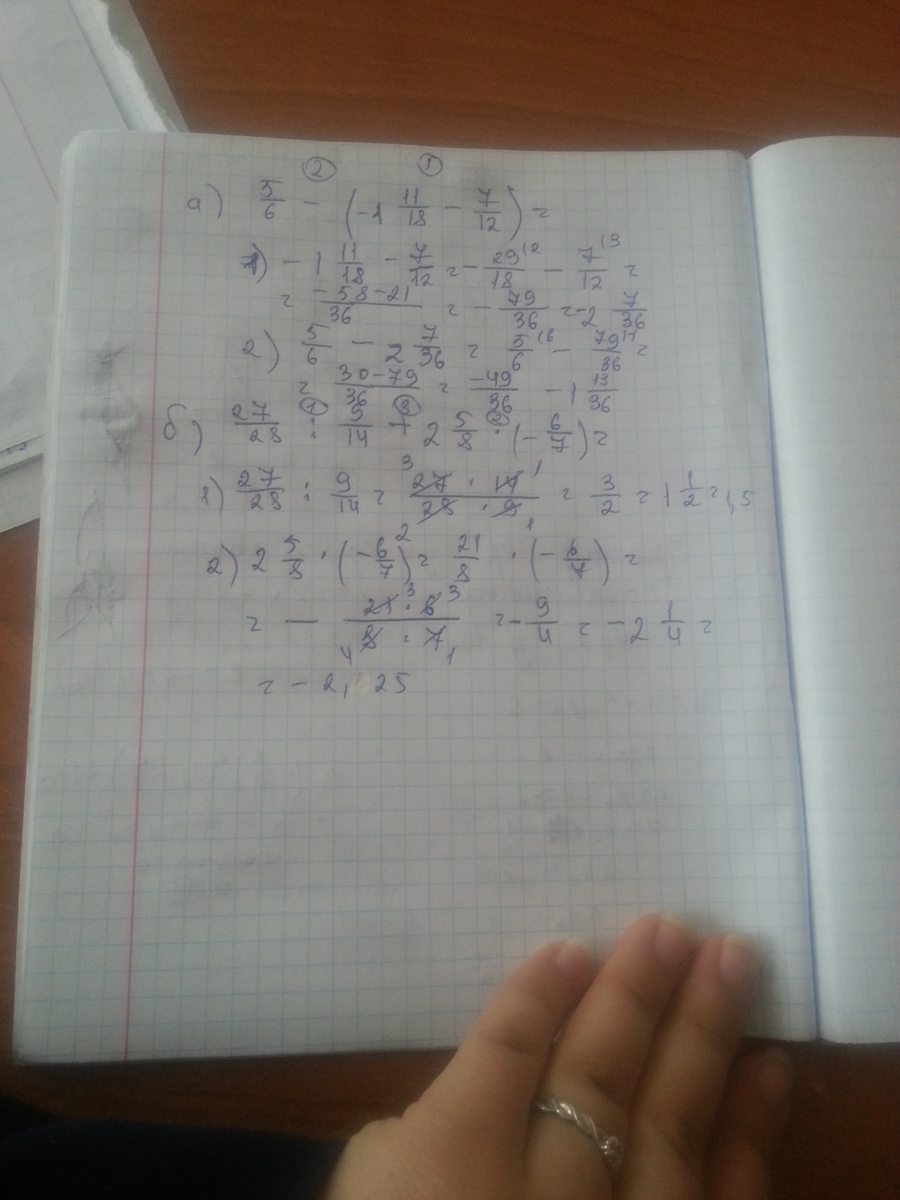 ② ①
а) 5/6 - (-1 11/18 - 7/12) =
1) -1 11/18 - 7/12 = - 29/18 (2 - 7/12 (3 =
= -58-21/36 = - 79/36 = -2 7/36
2) 5/6 - 2 7/36 = 5/6 (6 - 79/36 (1 =
= 30-79/36 = -49/36 - 1 13/36
① ③ ②
б) 27/28 : 9/14 + 2 5/8 · (-6/7) =
1) 27/28 : 9/14 = 27 · 14/28 · 9 = 3/2 = 1 1/2 = 1,5
2) 2 5/8 · (-6/7) = 21/8 · (-6/7) =
= - 21 · 6/8 · 7 = -9/4 = -2 1/4 =
= -2,25